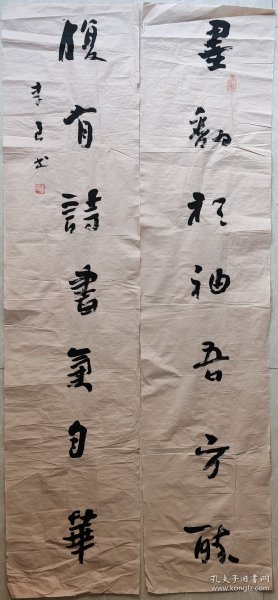 墨翻衫袖吾方醉
腹有詩書氣自華
孔夫子旧书网